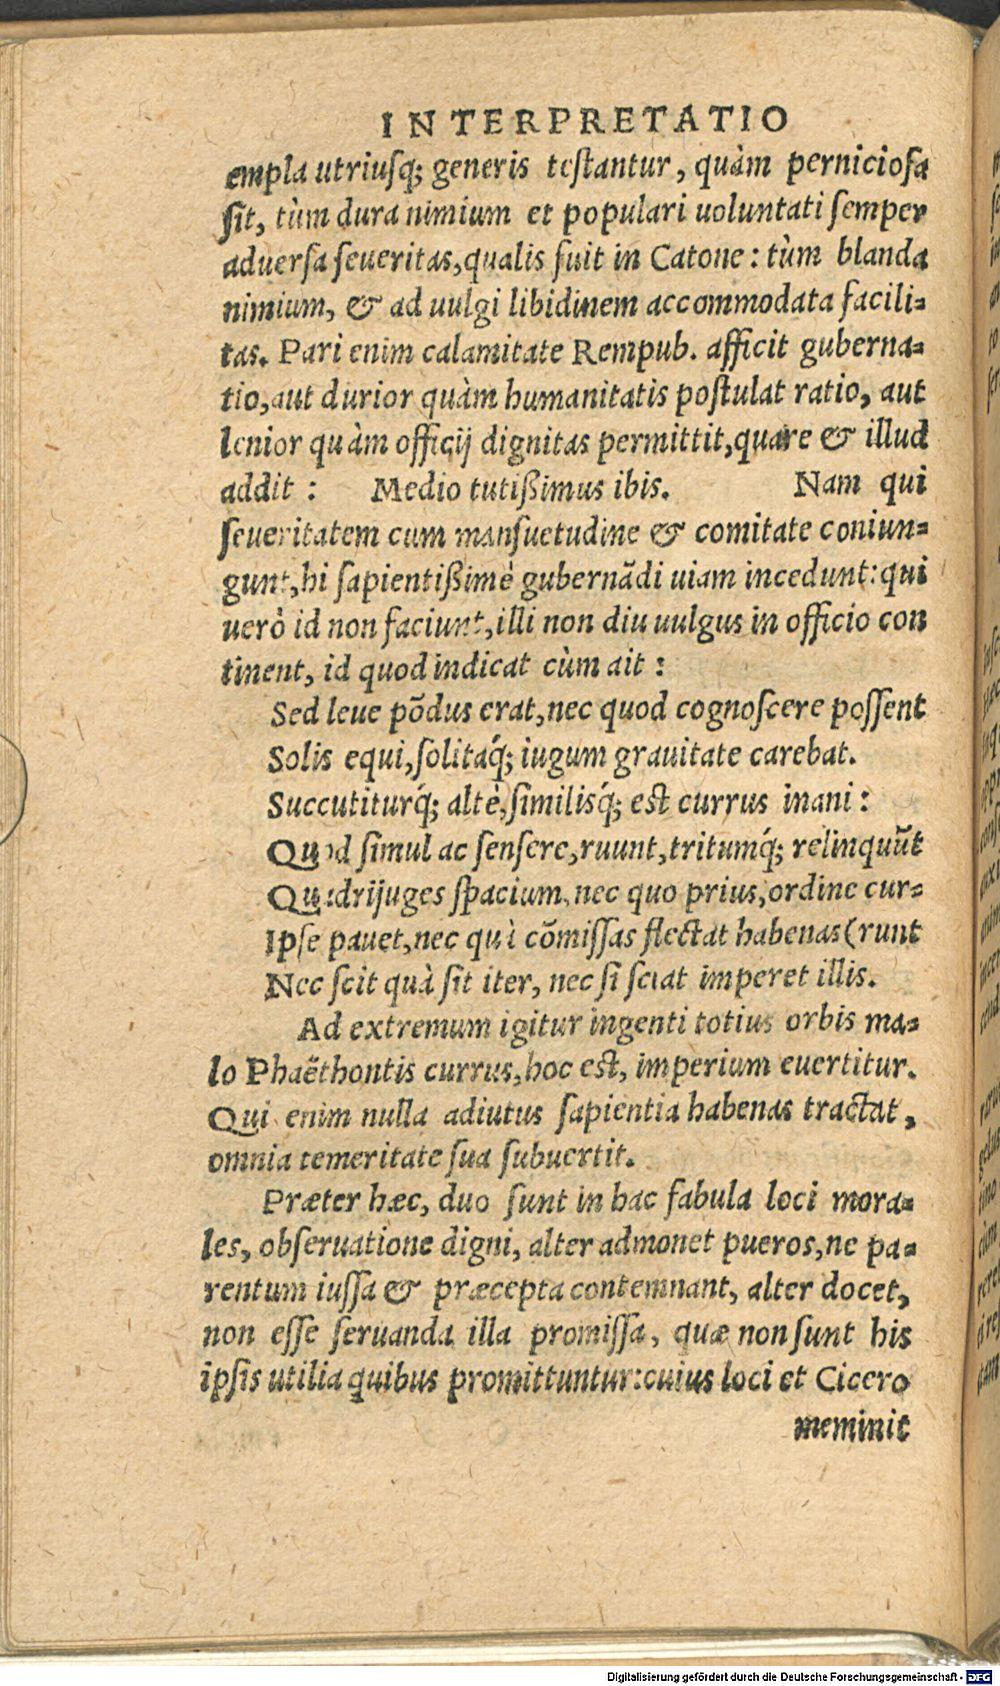 INTERPRETATIO
empla utriusq; generis testantur, quàm perniciosa
sit, tùm dura nimium et populari uoluntati semper
aduersa seueritas, qualis fuit in Catone: tùm blanda
nimium, & ad uulgi libidinem accommodata facili-
tas. Pari enim calamitate Rempub. afficit guberna-
tio, aut durior quàm humanitatis postulat ratio, aut
lenior quàm officij dignitas permittit, quare & illud
addit : Medio tutißimus ibis. Nam qui
seueritatem cum mansuetudine & comitate coniun-
gunt, hi sapientißimè gubernãdi uiam incedunt: qui
uerò id non faciunt, illi non diu uulgus in officio con
tinent, id quod indicat cùm ait :
Sed leue põdus erat, nec quod cognoscere possent
Solis equi, solitaq́; iugum grauitate carebat.
Succutiturq́; altè, similisq́; est currus inani :
Quod simul ac sensere, ruunt, tritumq́; relinquũt
Quadrijuges spacium, nec quo prius, ordine cur-
Ipse pauet, nec quà cõmissas flectat habenas (runt
Nec scit quà sit iter, nec si sciat imperet illis.
Ad extremum igitur ingenti totius orbis ma-
lo Phaëthontis currus, hoc est, imperium euertitur.
Qui enim nulla adiutus sapientia habenas tractat,
omnia temeritate sua subuertit.
Præter hæc, duo sunt in hac fabula loci mora-
les, obseruatione digni, alter admonet pueros, ne pa-
rentum iussa & præcepta contemnant, alter docet,
non esse seruanda illa promissa, quæ non sunt his
ipsis utilia quibus promittuntur: cuius loci et Cicero
meminit
Digitalisierung gefördert durch die Deutsche Forschungsgemeinschaft - DFG